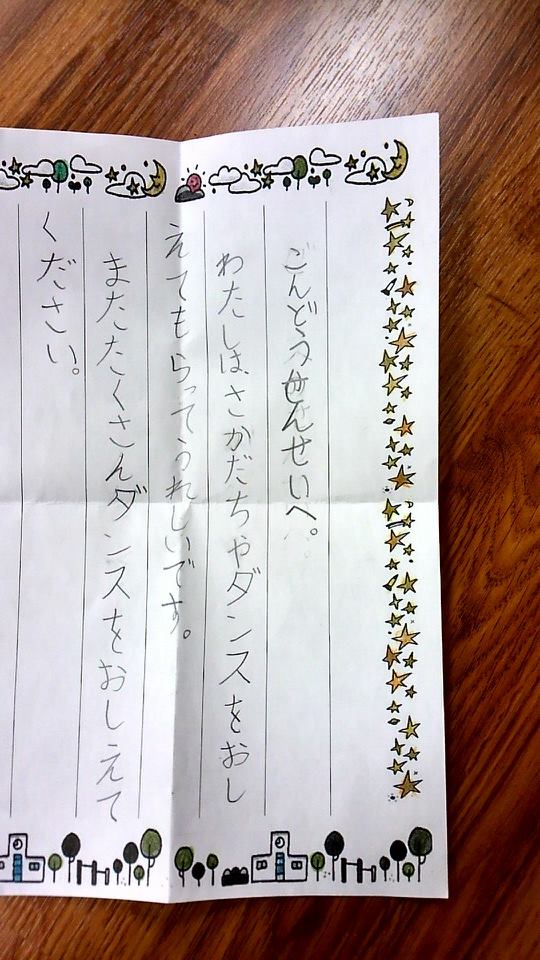 ごんどうせんせいへ。
わたしは、さかだちやダンスをおし
えてもらってうれしいです。
またたくさんダンスをおしえて
ください。